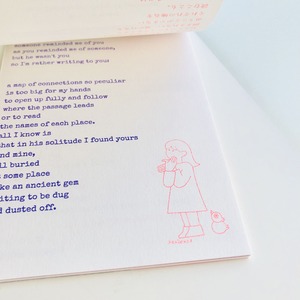 someone reminded me of you
as you reminded me of someone,
but he wasn't you
so I'm rather writing to you:
a map of connections so peculiar
is too big for my hands
to open up fully and follow
where the passage leads
or to read
the names of each place.
all I know is
that in his solitude I found yours
and mine,
all buried
some place
like an ancient gem
waiting to be dug
dusted off.